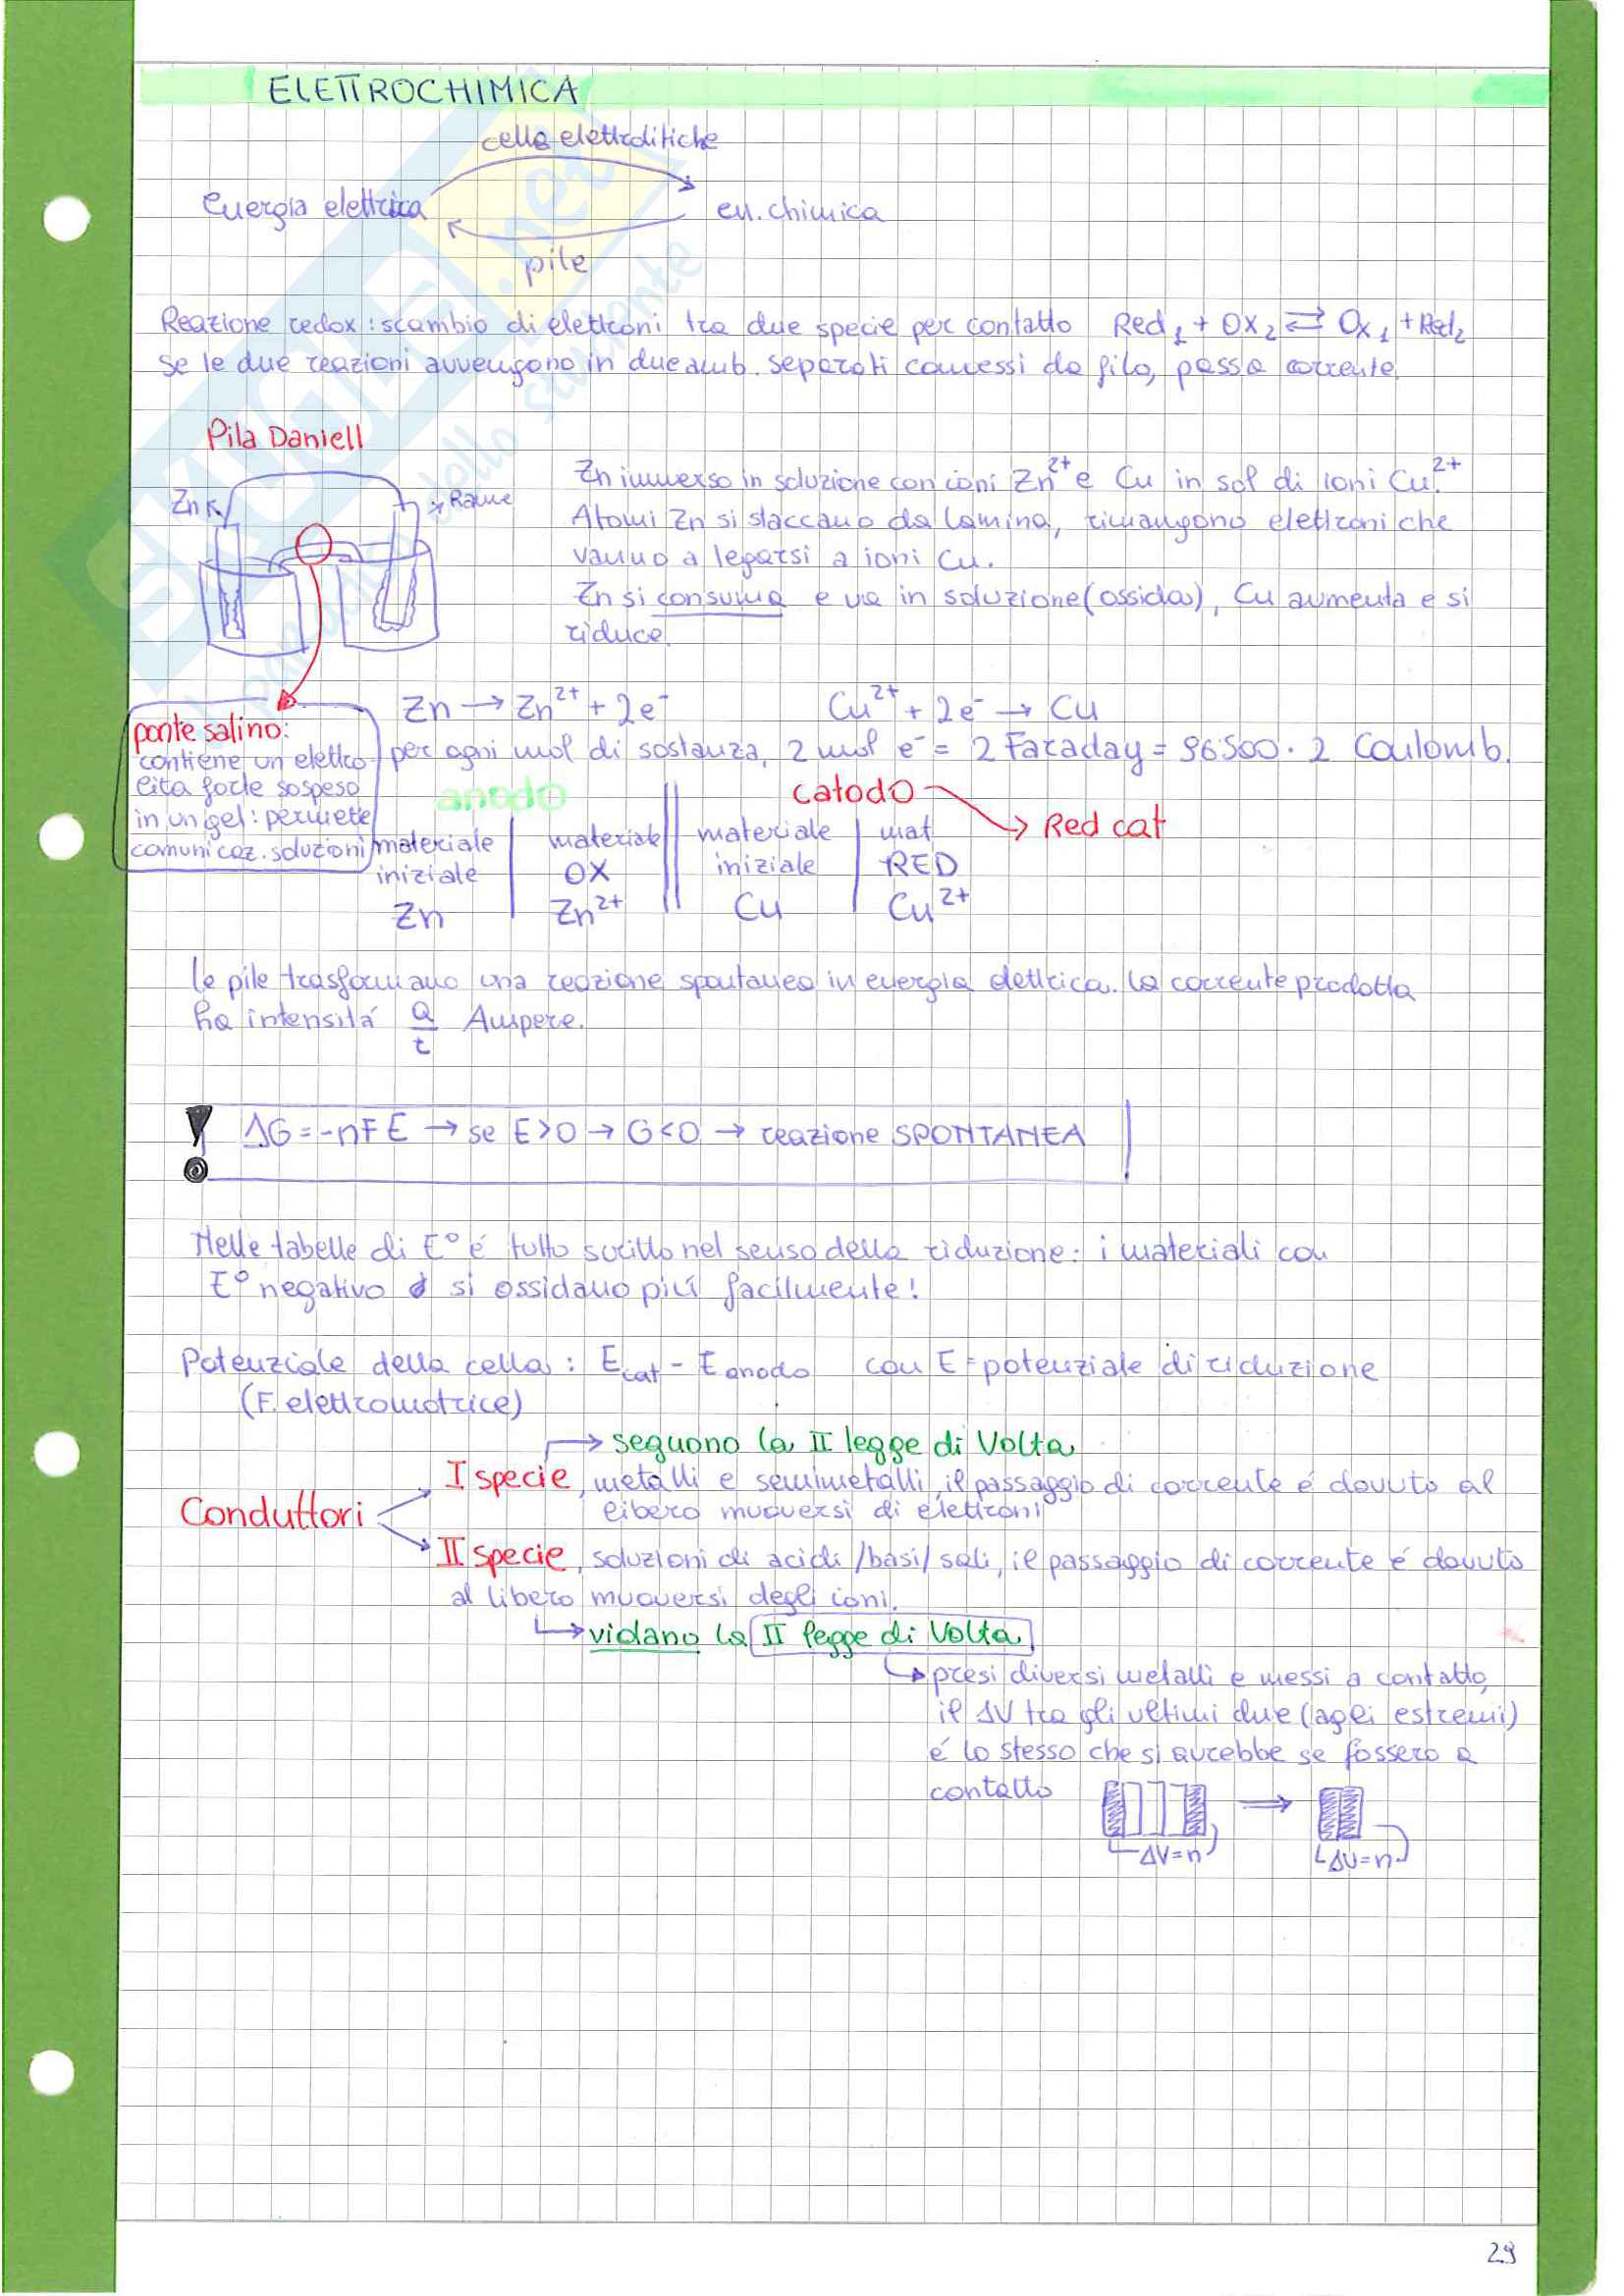 ELETTROCHIMICA
celle elettrolitiche
Energia elettrica
en. chimica
pile
Reazione redox: scambio di elettroni tra due specie per contatto Red1 + Ox2 ⇄ Ox1 + Red2
se le due reazioni avvengono in due amb. separati connessi da filo, passa corrente.
Pila Daniell
Zn
Rame
Zn immerso in soluzione con ioni Zn²⁺ e Cu in sol di ioni Cu²⁺.
Atomi Zn si staccano da lamina, rimangono elettroni che
vanno a legarsi a ioni Cu.
Zn si consuma e va in soluzione (ossida), Cu aumenta e si
riduce.
Zn → Zn²⁺ + 2e⁻ Cu²⁺ + 2e⁻ → Cu
per ogni mol di sostanza, 2 mol e⁻ = 2 Faraday = 96500 · 2 Coulomb.
ponte salino:
contiene un elettro
lita forte sospeso
in un gel: permette
comunicaz. soluzioni
anodo
catodo → Red cat
materiale | materiale || materiale | mat
iniziale | OX || iniziale | RED
Zn | Zn²⁺ || Cu | Cu²⁺
le pile trasformano una reazione spontanea in energia elettrica. la corrente prodotta
ha intensitá Q/t Ampere.
! ΔG = -nFE → se E>0 → G<0 → reazione SPONTANEA
Nelle tabelle di E° é tutto scritto nel senso della riduzione: i materiali con
E° negativo si ossidano piú facilmente!
Potenziale della cella: Ecat - Eanodo con E = potenziale di riduzione
(F. elettromotrice)
→ seguono la II legge di Volta
Conduttori
I specie, metalli e semimetalli, il passaggio di corrente é dovuto al
libero muoversi di elettroni
II specie, soluzioni di acidi/basi/sali, il passaggio di corrente é dovuto
al libero muoversi degli ioni.
→ violano la II legge di Volta
↳ presi diversi metalli e messi a contatto,
il ΔV tra gli ultimi due (agli estremi)
é lo stesso che si avrebbe se fossero a
contatto
⇒
ΔV=n
ΔV=n
29
SKUOLA.net